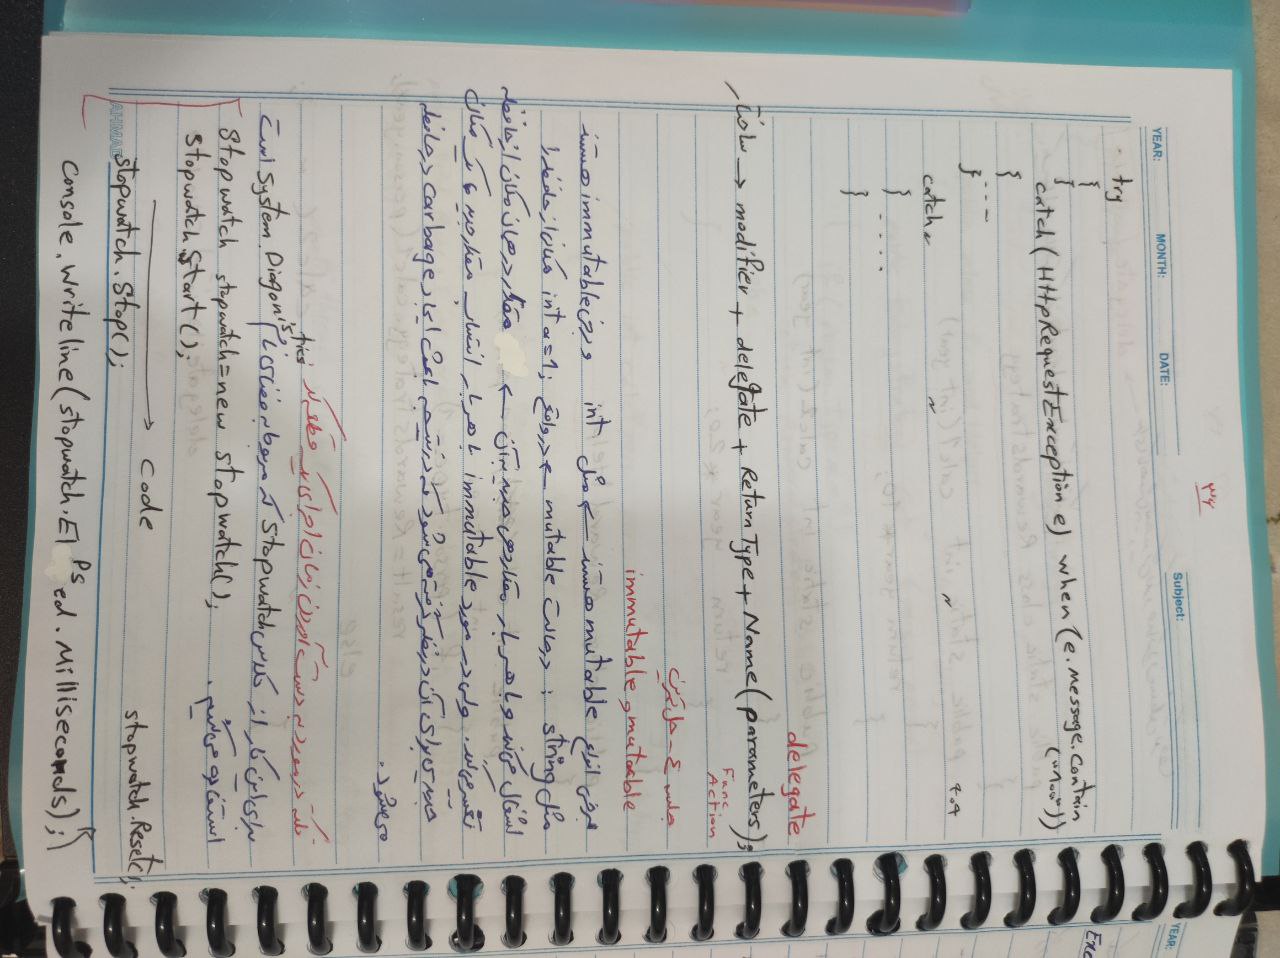 ۳۶
YEAR: MONTH: DATE: Subject:
try
{
}
catch (HttpRequestException e) when (e.message.contain
("۸۰۰"))
{
----
}
catch 〃 〃 〃 ۴۰۴
{
....
}
delegate
ساختار → modifier + delegate + ReturnType + Name (parameters);
Func
Action
جلسه ٤ - حل تمرین
immutable و mutable
برخی انواع mutable هستند ← مثل int و برخی immutable هستند
مثل string : در حالت mutable ← در واقع int a=1; مکانی از حافظه را
اشغال می‌کند و با هر بار مقداردهی جدید به آن ← مقدار در همان مکان از حافظه
تغییر می‌کند. ولی در مورد immutable با هر بار انتساب مقدار جدید، یک مکان
جدیدی برای آن در نظر گرفته می‌شود که در نتیجه باعث ایجاد carbage در حافظه
می‌شود.
نکته در مورد به دست آوردن زمان اجرای یک قطعه کد
برای این کار از کلاس Stopwatch که مربوط به فضای نام System.Diagonistics است
استفاده می‌کنیم.
Stopwatch stopwatch = new stopwatch();
Stopwatch.Start();
→ code
stopwatch.Reset();
stopwatch.Stop();
AHMAD
Console.Writeline(stopwatch.Elpsed.Milliseconds);
YEAR:
Exc